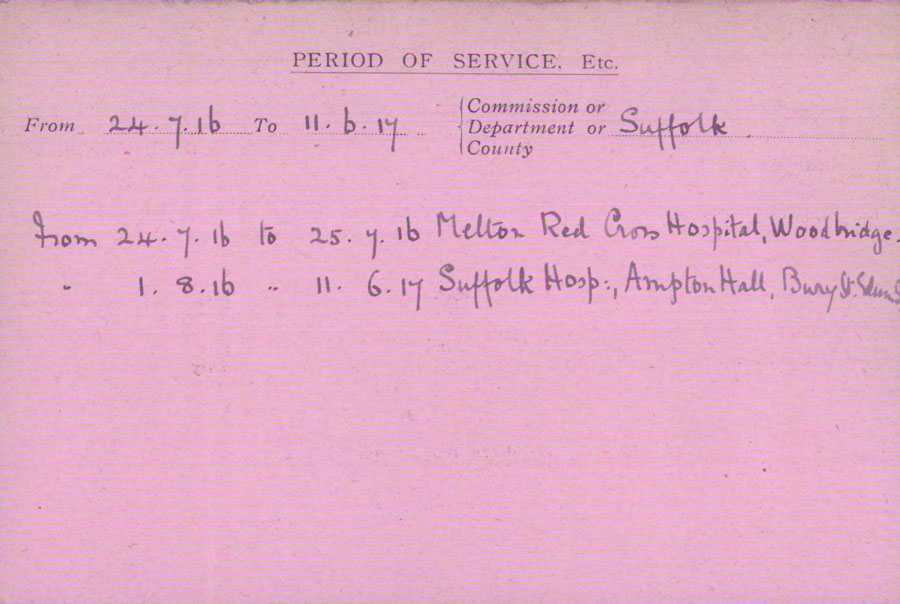 PERIOD OF SERVICE. Etc.
From 24.7.16 To 11.6.17 {Commission or Department or County Suffolk
From 24.7.16 to 25.7.16 Melton Red Cross Hospital, Woodbridge.
" 1.8.16 " 11.6.17 Suffolk Hosp:, Ampton Hall, Bury St. Edmunds